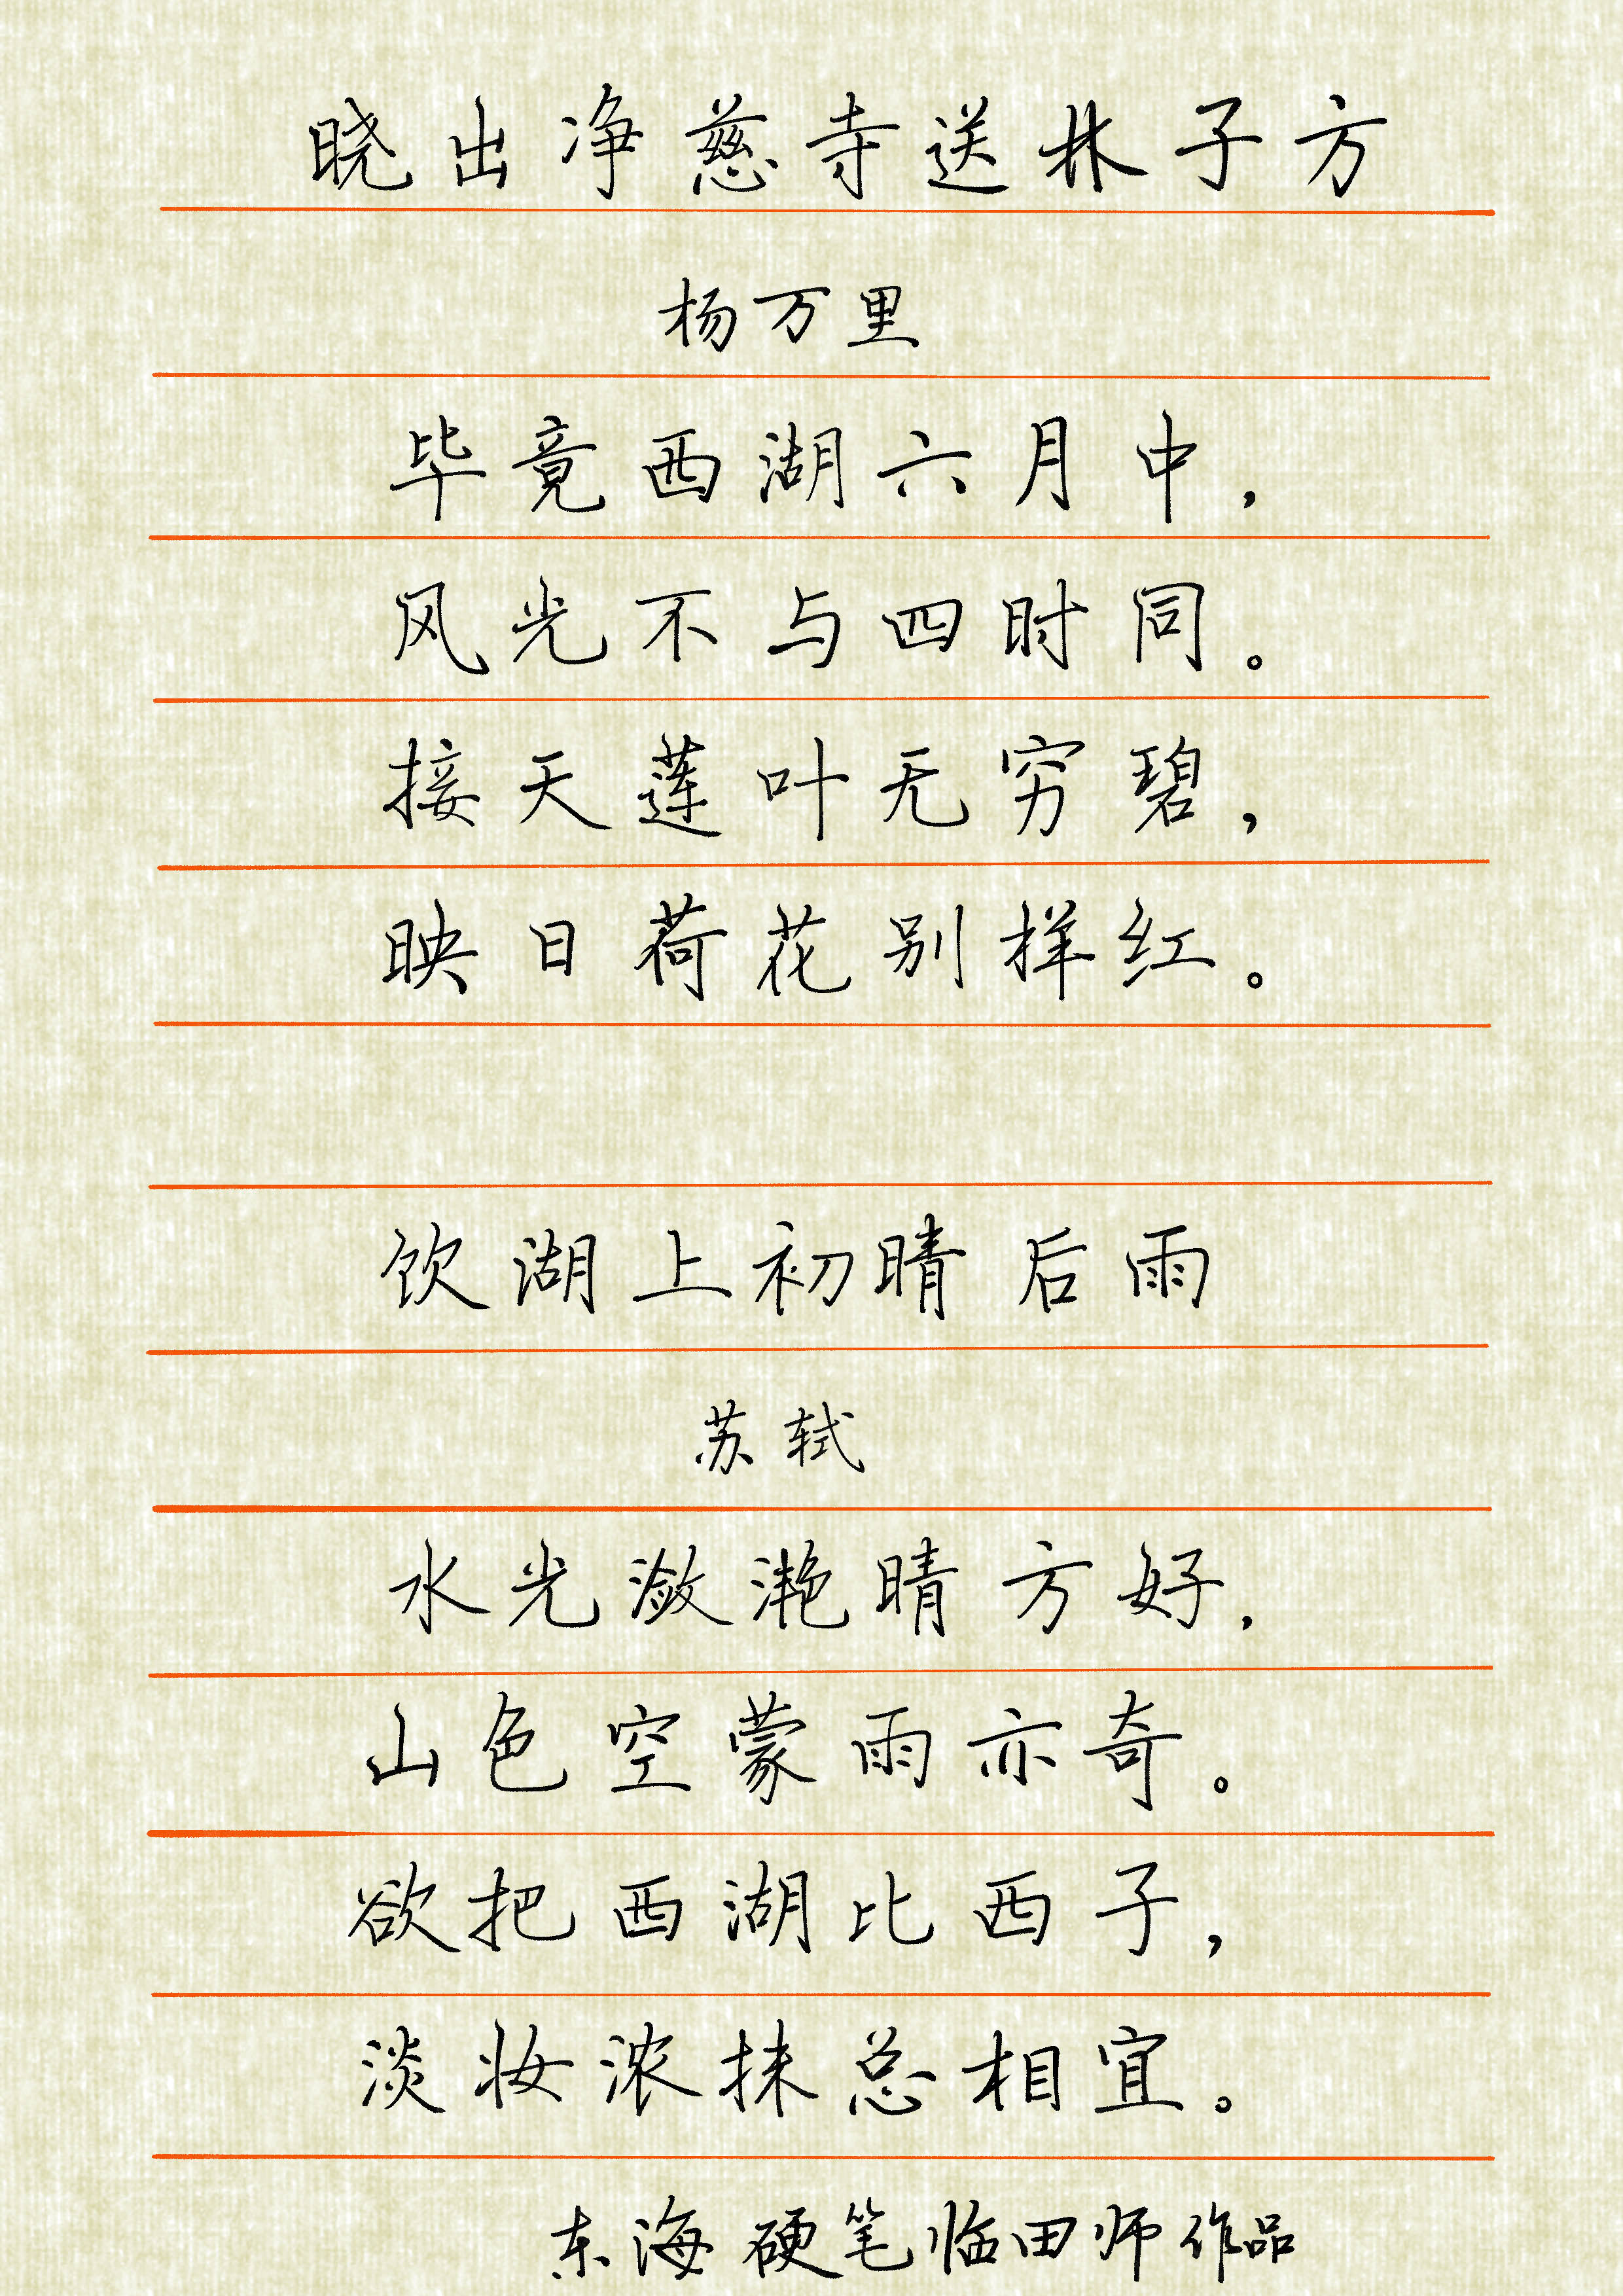 晓出净慈寺送林子方
杨万里
毕竟西湖六月中，
风光不与四时同。
接天莲叶无穷碧，
映日荷花别样红。
饮湖上初晴后雨
苏轼
水光潋滟晴方好，
山色空蒙雨亦奇。
欲把西湖比西子，
淡妆浓抹总相宜。
东海硬笔临田师作品